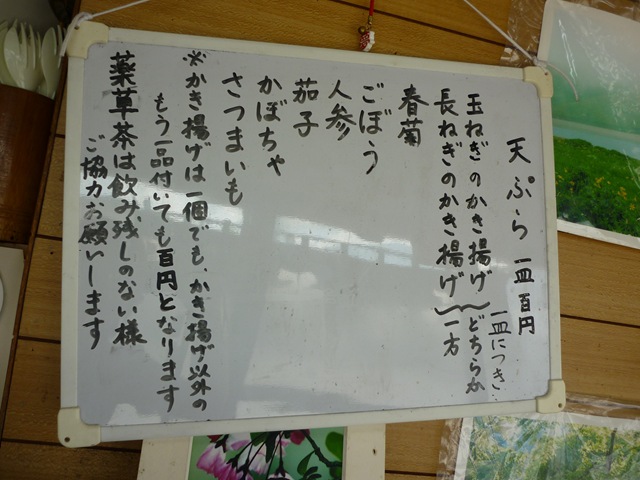 天ぷら 一皿 百円
一皿につき
玉ねぎのかき揚げ どちらか
長ねぎのかき揚げ 一方
春菊
ごぼう
人参
茄子
かぼちゃ
さつまいも
※かき揚げは一個でも、かき揚げ以外の
もう一品付いても百円となります
薬草茶は飲み残しのない様
ご協力お願いします